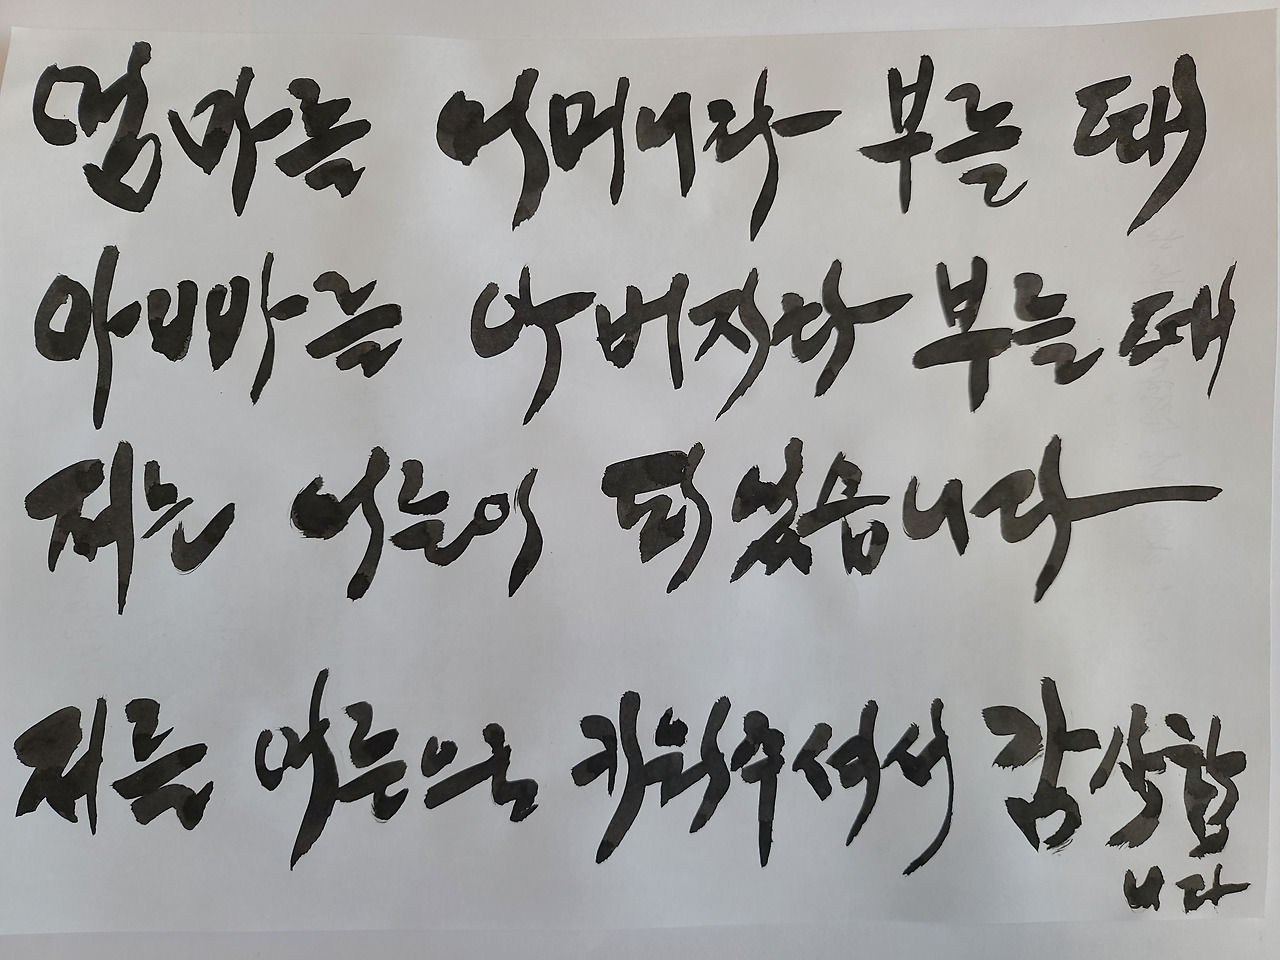 엄마를 어머니라 부를 때
아빠를 아버지라 부를 때
저는 어른이 되었습니다
저를 어른으로 키워주셔서 감사합
니다